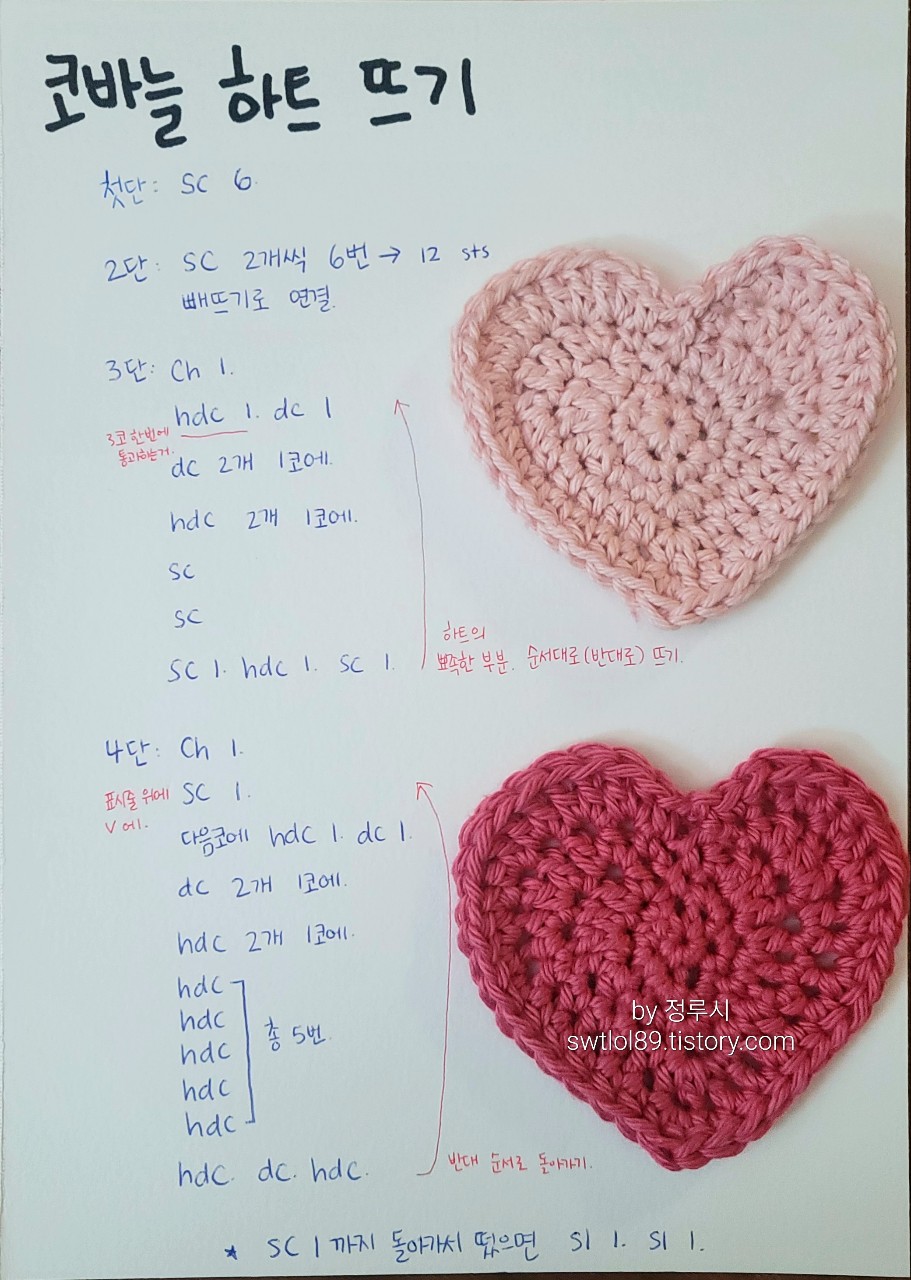 코바늘 하트 뜨기
첫단: SC 6.
2단: SC 2개씩 6번 → 12 sts
빼뜨기로 연결.
3단: Ch 1.
hdc 1. dc 1
3코 한번에
통과하는거.
dc 2개 1코에.
hdc 2개 1코에.
SC
SC
SC 1. hdc 1. SC 1.
하트의
뾰족한 부분. 순서대로(반대로) 뜨기.
4단: Ch 1.
표시줄 위에
V에.
SC 1.
다음코에 hdc 1. dc 1.
dc 2개 1코에.
hdc 2개 1코에.
hdc
hdc
hdc
hdc
hdc
총 5번.
hdc. dc. hdc.
반대 순서로 돌아가기.
by 정루시
swtlol89.tistory.com
* SC 1까지 돌아가서 떴으면 Sl 1. Sl 1.